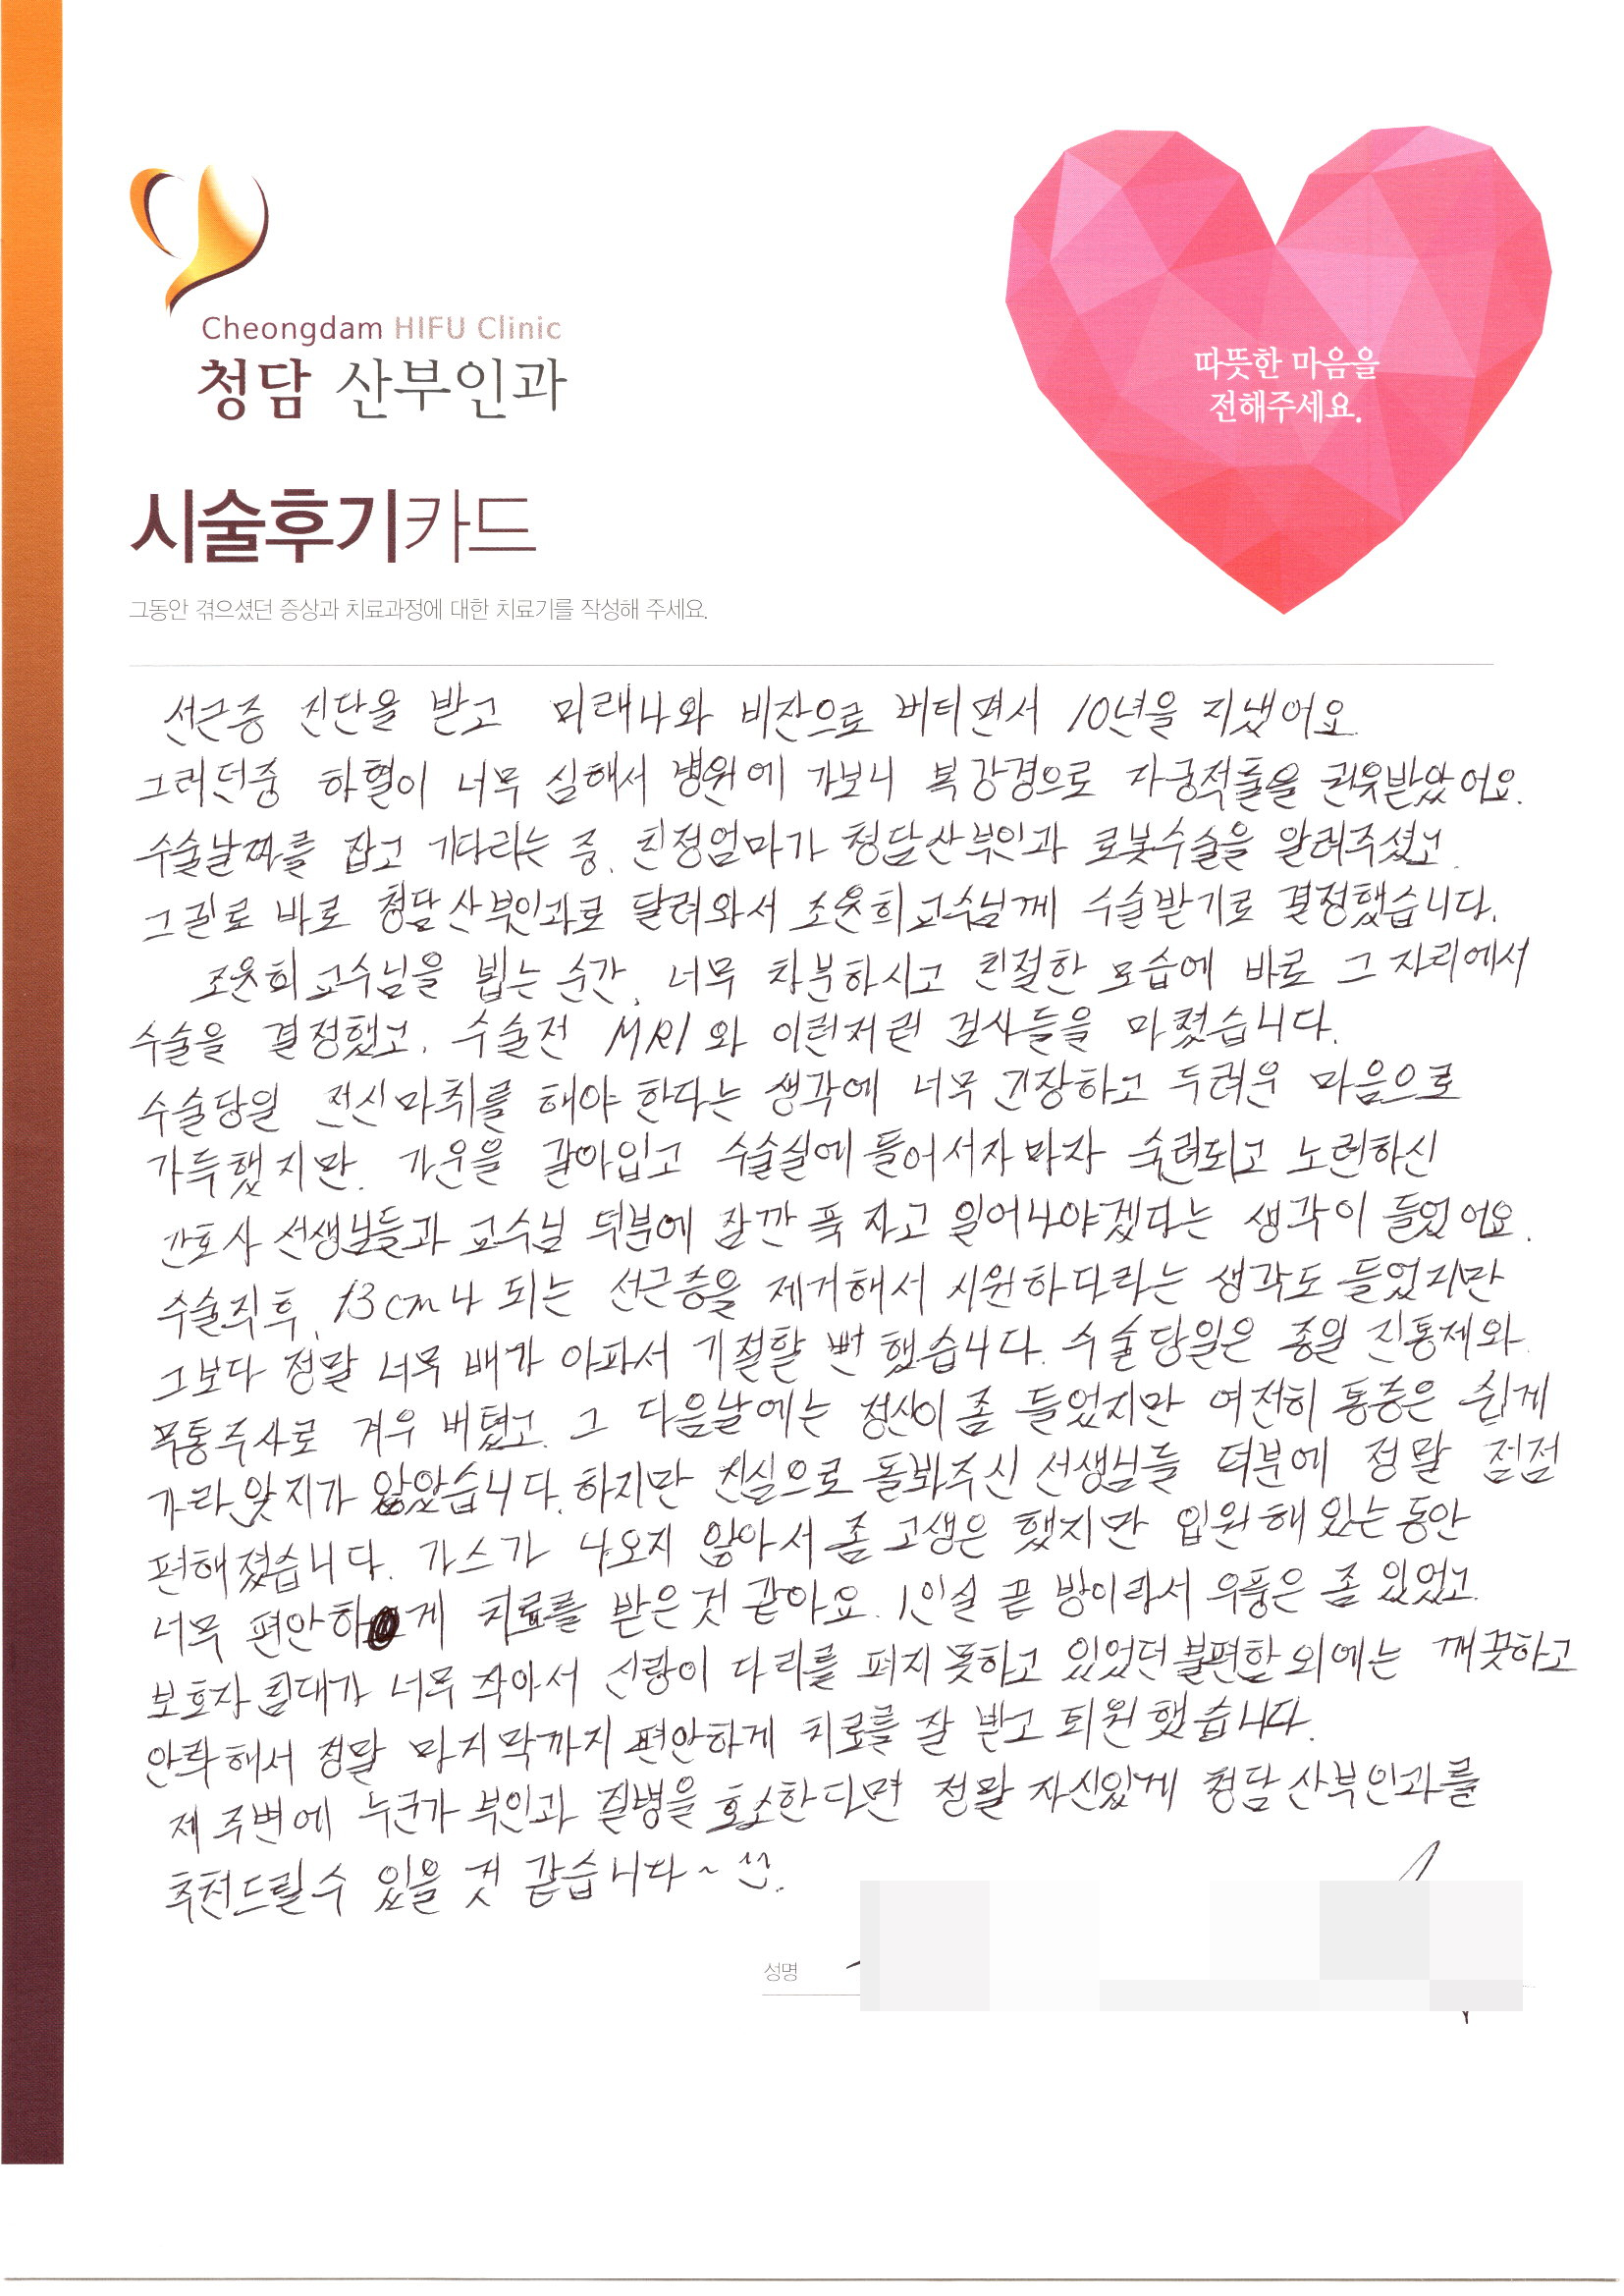 Cheongdam HIFU Clinic
청담 산부인과
따뜻한 마음을
전해주세요.
시술후기카드
그동안 겪으셨던 증상과 치료과정에 대한 치료기를 작성해 주세요.
선근증 진단을 받고 미래나와 비잔으로 버티면서 10년을 지냈어요.
그러던중 하혈이 너무 심해서 병원에 가보니 복강경으로 자궁적출을 권유받았어요.
수술날짜를 잡고 기다리는 중, 친정엄마가 청담산부인과 로봇수술을 알려주셨고,
그길로 바로 청담산부인과로 달려와서 조윤희교수님께 수술받기로 결정했습니다.
조윤희교수님을 뵙는 순간, 너무 차분하시고 친절한 모습에 바로 그 자리에서
수술을 결정했고, 수술전 MRI와 이런저런 검사들을 마쳤습니다.
수술당일 전신마취를 해야 한다는 생각에 너무 긴장하고 두려운 마음으로
가득했지만, 가운을 갈아입고 수술실에 들어서자마자 숙련되고 노련하신
간호사 선생님들과 교수님 덕분에 잠깐 푹 자고 일어나야겠다는 생각이 들었어요.
수술직후, 13cm나 되는 선근증을 제거해서 시원하다라는 생각도 들었지만
그보다 정말 너무 배가 아파서 기절할 뻔 했습니다. 수술당일은 종일 진통제와
무통주사로 겨우 버텼고, 그 다음날에는 정신이 좀 들었지만 여전히 통증은 쉽게
가라앉지가 않았습니다. 하지만 진심으로 돌봐주신 선생님들 덕분에 정말 점점
편해졌습니다. 가스가 나오지 않아서 좀 고생은 했지만 입원해 있는 동안
너무 편안하게 치료를 받은것 같아요. 1인실 끝 방이라서 우풍은 좀 있었고,
보호자 침대가 너무 작아서 신랑이 다리를 펴지 못하고 있었던 불편함 외에는 깨끗하고
안락해서 정말 마지막까지 편안하게 치료를 잘 받고 퇴원했습니다.
제 주변에 누군가 부인과 질병을 호소한다면 정말 자신있게 청담산부인과를
추천드릴수 있을 것 같습니다~ ^^.
성명